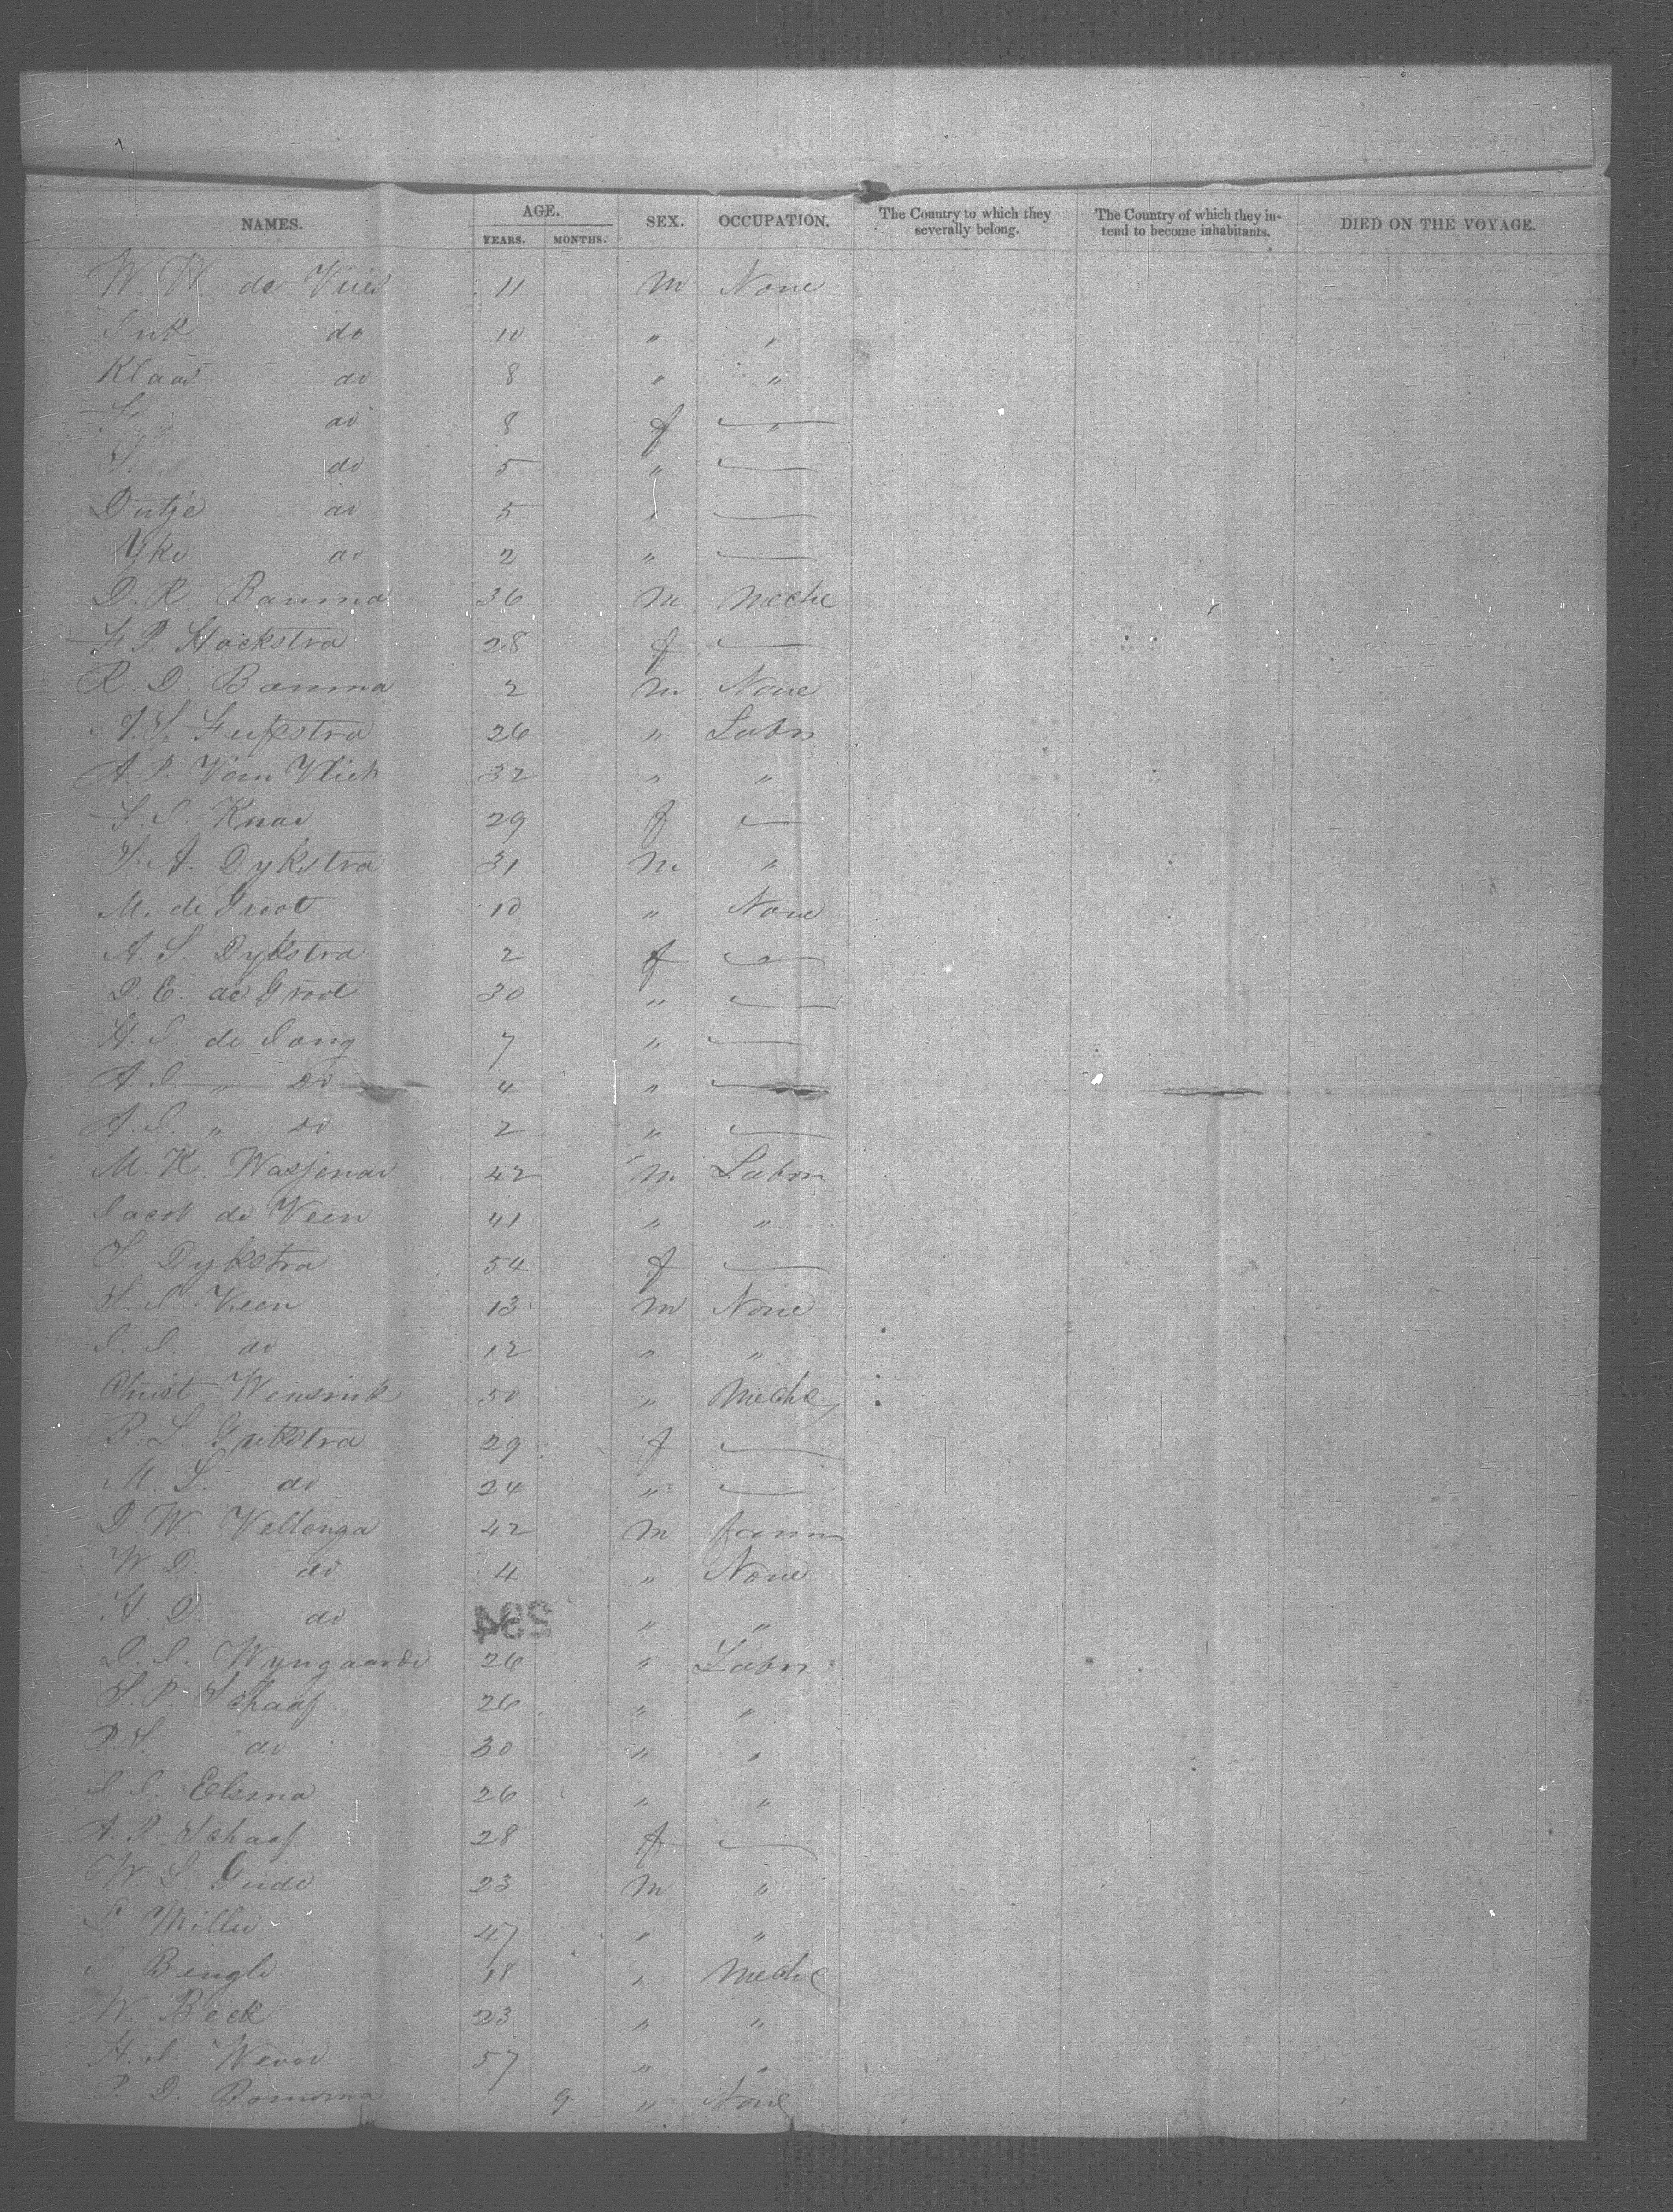 NAMES. AGE. SEX. OCCUPATION. The Country to which they severally belong. The Country of which they intend to become inhabitants. DIED ON THE VOYAGE.
YEARS. MONTHS.
W. W. de Vries 11 m None
do 10 " "
Klaas do 8 " "
do 8 f "
S. do 5 "
Dutje do 5 "
Yke do 2 "
D. R. Bauma 36 m Meche
F. P. Hoekstra 28 f
R. D. Bauma 2 m None
A. S. Feifstra 26 " Labr
A. P. Van Vliet 32 " "
S. S. Knar 29 f
S. A. Dykstra 31 m "
M. de Groot 10 " None
A. S. Dykstra 2 f
P. E. de Groot 30 "
H. J. de Jong 7 "
A. J. " do 4 "
A. J. " do 2 "
M. K. Wasjenar 42 m Labor
Jacob de Veen 41 " "
S Dykstra 54 f
S. J. Veen 13 m None
J. J. do 12 " "
Christ Wensink 50 " Meche
B. L. 29 f
M. S. do 24 "
D. W. Vellenga 42 m farm
W. D. do 4 " None
H. D. do 234 " "
D. J. Wyngaarde 26 " Labr
S. P. Schaaf 26 " "
P. S. do 30 " "
J. J. Elsma 26 " "
A. P. Schaaf 28 f
W. S. Geide 23 m "
Miller 47 " "
J Bengle 18 " Meche
W. Beck 23 " "
H. J. Wever 57 " "
P. D. 9 " None